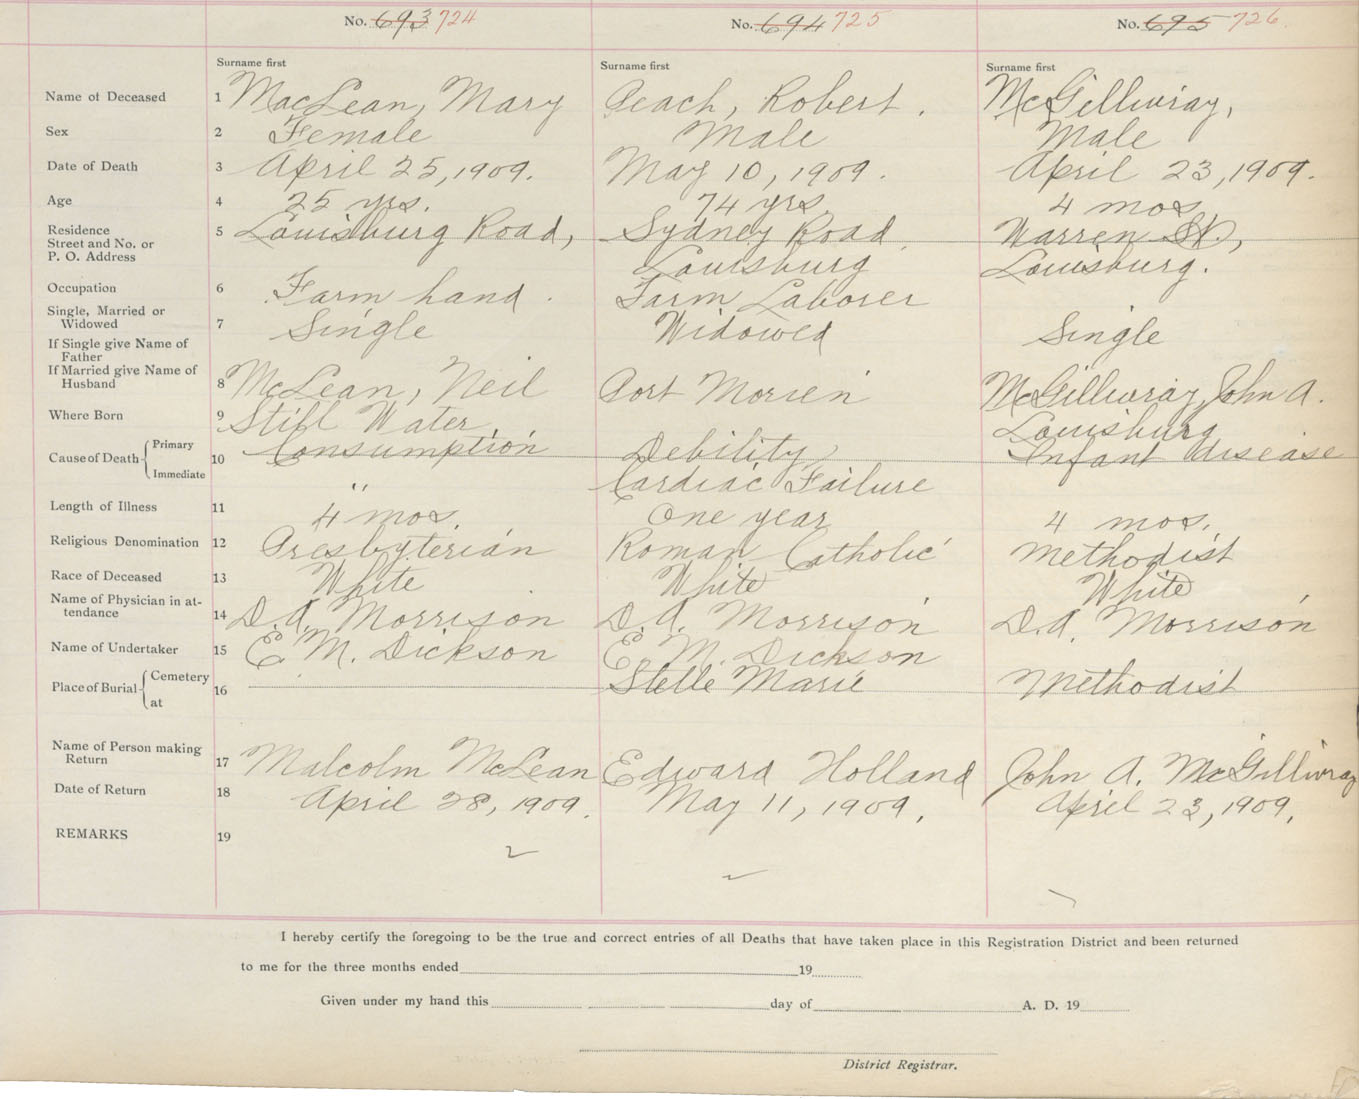 No. 693 724 No. 694 725 No. 695 726
Surname first Surname first Surname first
Name of Deceased 1 MacLean, Mary Peach, Robert. McGillivray,
Sex 2 Female Male Male
Date of Death 3 April 25, 1909. May 10, 1909. April 23, 1909.
Age 4 25 yrs. 74 yrs. 4 mos.
Residence
Street and No. or 5 Louisburg Road, Sydney Road, Warren St.,
P. O. Address Louisburg Louisburg.
Occupation 6 Farm hand. Farm Laborer
Single, Married or
Widowed 7 Single Widowed Single
If Single give Name of
Father
If Married give Name of
Husband 8 McLean, Neil Port Morien McGillivray, John A.
Where Born 9 Still Water, Louisburg
Cause of Death Primary 10 Consumption Debility, Infant disease
Immediate " Cardiac Failure
Length of Illness 11 4 mos. One year 4 mos.
Religious Denomination 12 Presbyterian Roman Catholic Methodist
Race of Deceased 13 White White White
Name of Physician in at-
tendance 14 D.A. Morrison D.A. Morrison D.A. Morrison
Name of Undertaker 15 E. M. Dickson E. M. Dickson
Place of Burial Cemetery 16 Stelle Marie Methodist
at
Name of Person making
Return 17 Malcolm McLean Edward Holland John A. McGillivray
Date of Return 18 April 28, 1909. May 11, 1909. April 23, 1909.
REMARKS 19
I hereby certify the foregoing to be the true and correct entries of all Deaths that have taken place in this Registration District and been returned
to me for the three months ended 19
Given under my hand this day of A. D. 19
District Registrar.